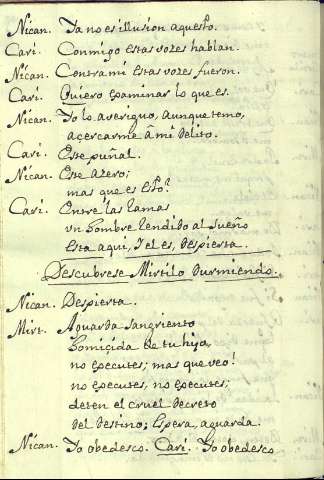 Nican. Ya no es illusion aquesto.
Cari. Conmigo estas vozes hablan.
Nican. Contra mi estas vozes fueron.
Cari. Quiero examinar lo que es.
Nican. Yo lo averiguo, aunque temo,
açercarme â mi delito.
Cari. Este puñal.
Nican. Este azero;
mas que es esto?
Cari. Entre las ramas
un hombre tendido al sueño
esta aqui, y el es, despierta.
Descubrese Mirtilo durmiendo.
Nican. Despierta.
Mirt. Aguarda sangriento
homiçida de tu hijo,
no executes; mas que veo!
no executes, no executes;
deten el cruel decreto
del destino; espera, aguarda.
Nican. Yo obedesco. Cari. Yo obedesco